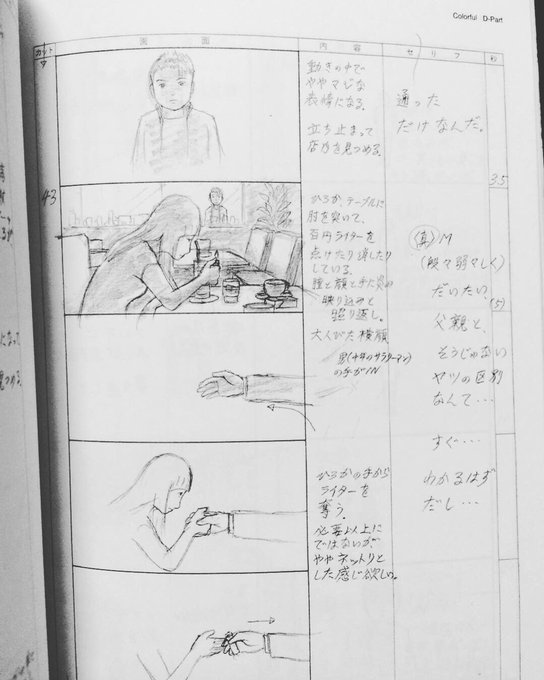 Colorful D-Part
カット
画面
内容
セリフ
秒
動きの中で
ややマジな
表情になる。
立ち止まって
店内を見つめる。
通った
だけなんだ。
3.5
43
ひろか、テーブルに
肘を突いて、
百円ライターを
点けたり消したり
している。
瞳と顔と
映り込みと
照り返し。
大人びた横顔
男(中年のサラリーマン)
の手がIN
(真)M
(段々弱々しく)
だいたい、
(5)
父親と、
そうじゃない
ヤツの区別
なんて…
すぐ…
わかるはず
だし…
ひろかの手から
ライターを
奪う。
必要以上に
ではないが
ややネットリと
した感じ欲しい。